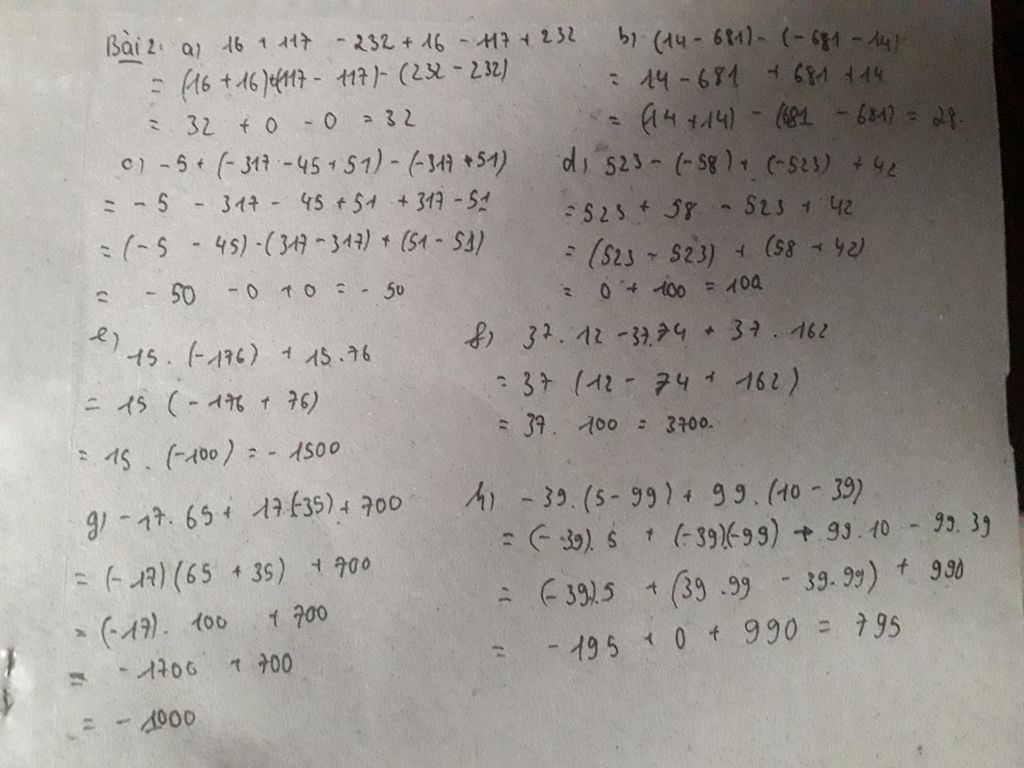 Bài 2: a) 16 + 117 - 232 + 16 - 117 + 232
= (16 + 16) + (117 - 117) - (232 - 232)
= 32 + 0 - 0 = 32
b) (14 - 681) - (-681 - 14)
= 14 - 681 + 681 + 14
= (14 + 14) - (681 - 681) = 28.
c) - 5 + (- 317 - 45 + 51) - (-317 + 51)
= - 5 - 317 - 45 + 51 + 317 - 51
= (- 5 - 45) - (317 - 317) + (51 - 51)
= - 50 - 0 + 0 = - 50
d) 523 - (-58) + (-523) + 42
= 523 + 58 - 523 + 42
= (523 - 523) + (58 + 42)
= 0 + 100 = 100
e) 15 . (-176) + 15 . 76
= 15 (- 176 + 76)
= 15 . (-100) = - 1500
f) 37 . 12 - 37.74 + 37 . 162
= 37 (12 - 74 + 162)
= 37 . 100 = 3700.
g) - 17 . 65 + 17.(-35) + 700
= (- 17) (65 + 35) + 700
= (-17) . 100 + 700
= - 1700 + 700
= - 1000
h) - 39 . (5 - 99) + 99 . (10 - 39)
= (- 39) . 5 + (-39)(-99) + 99 . 10 - 99 . 39
= (- 39).5 + (39 . 99 - 39 . 99) + 990
= - 195 + 0 + 990 = 795